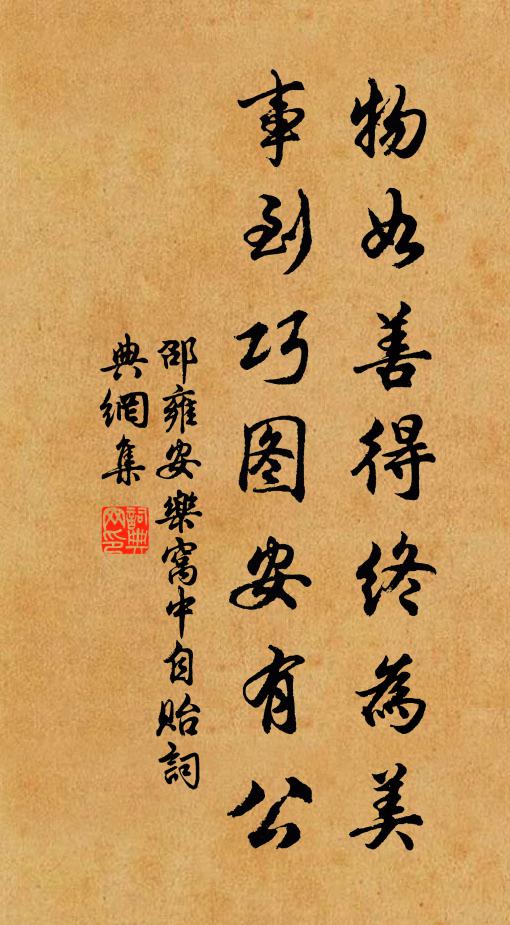 物如善得終為美
事到巧图安有公
邵雍安樂窩中自貽詞
典網集
詞典
网印